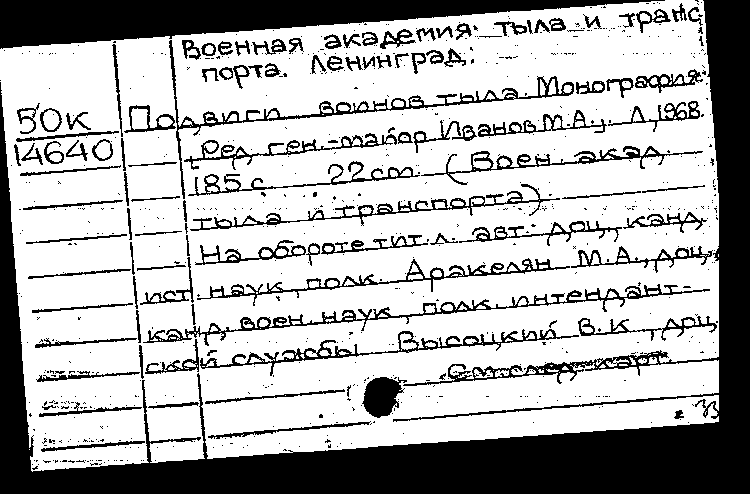 Военная академия тыла и транс
порта. Ленинград.
50к Подвиги воинов тыла. Монография.
14640 Ред. ген.-майор Иванов М.А., Л., 1968.
185 с. 22 cm. (Воен. акад.
тыла и транспорта)
На обороте тит. л. авт.: доц., канд.
ист. наук, полк. Аракелян М.А., доц.,
канд. воен. наук, полк. интендант-
ской службы Высоцкий В.К., доц.
См. след. карт.